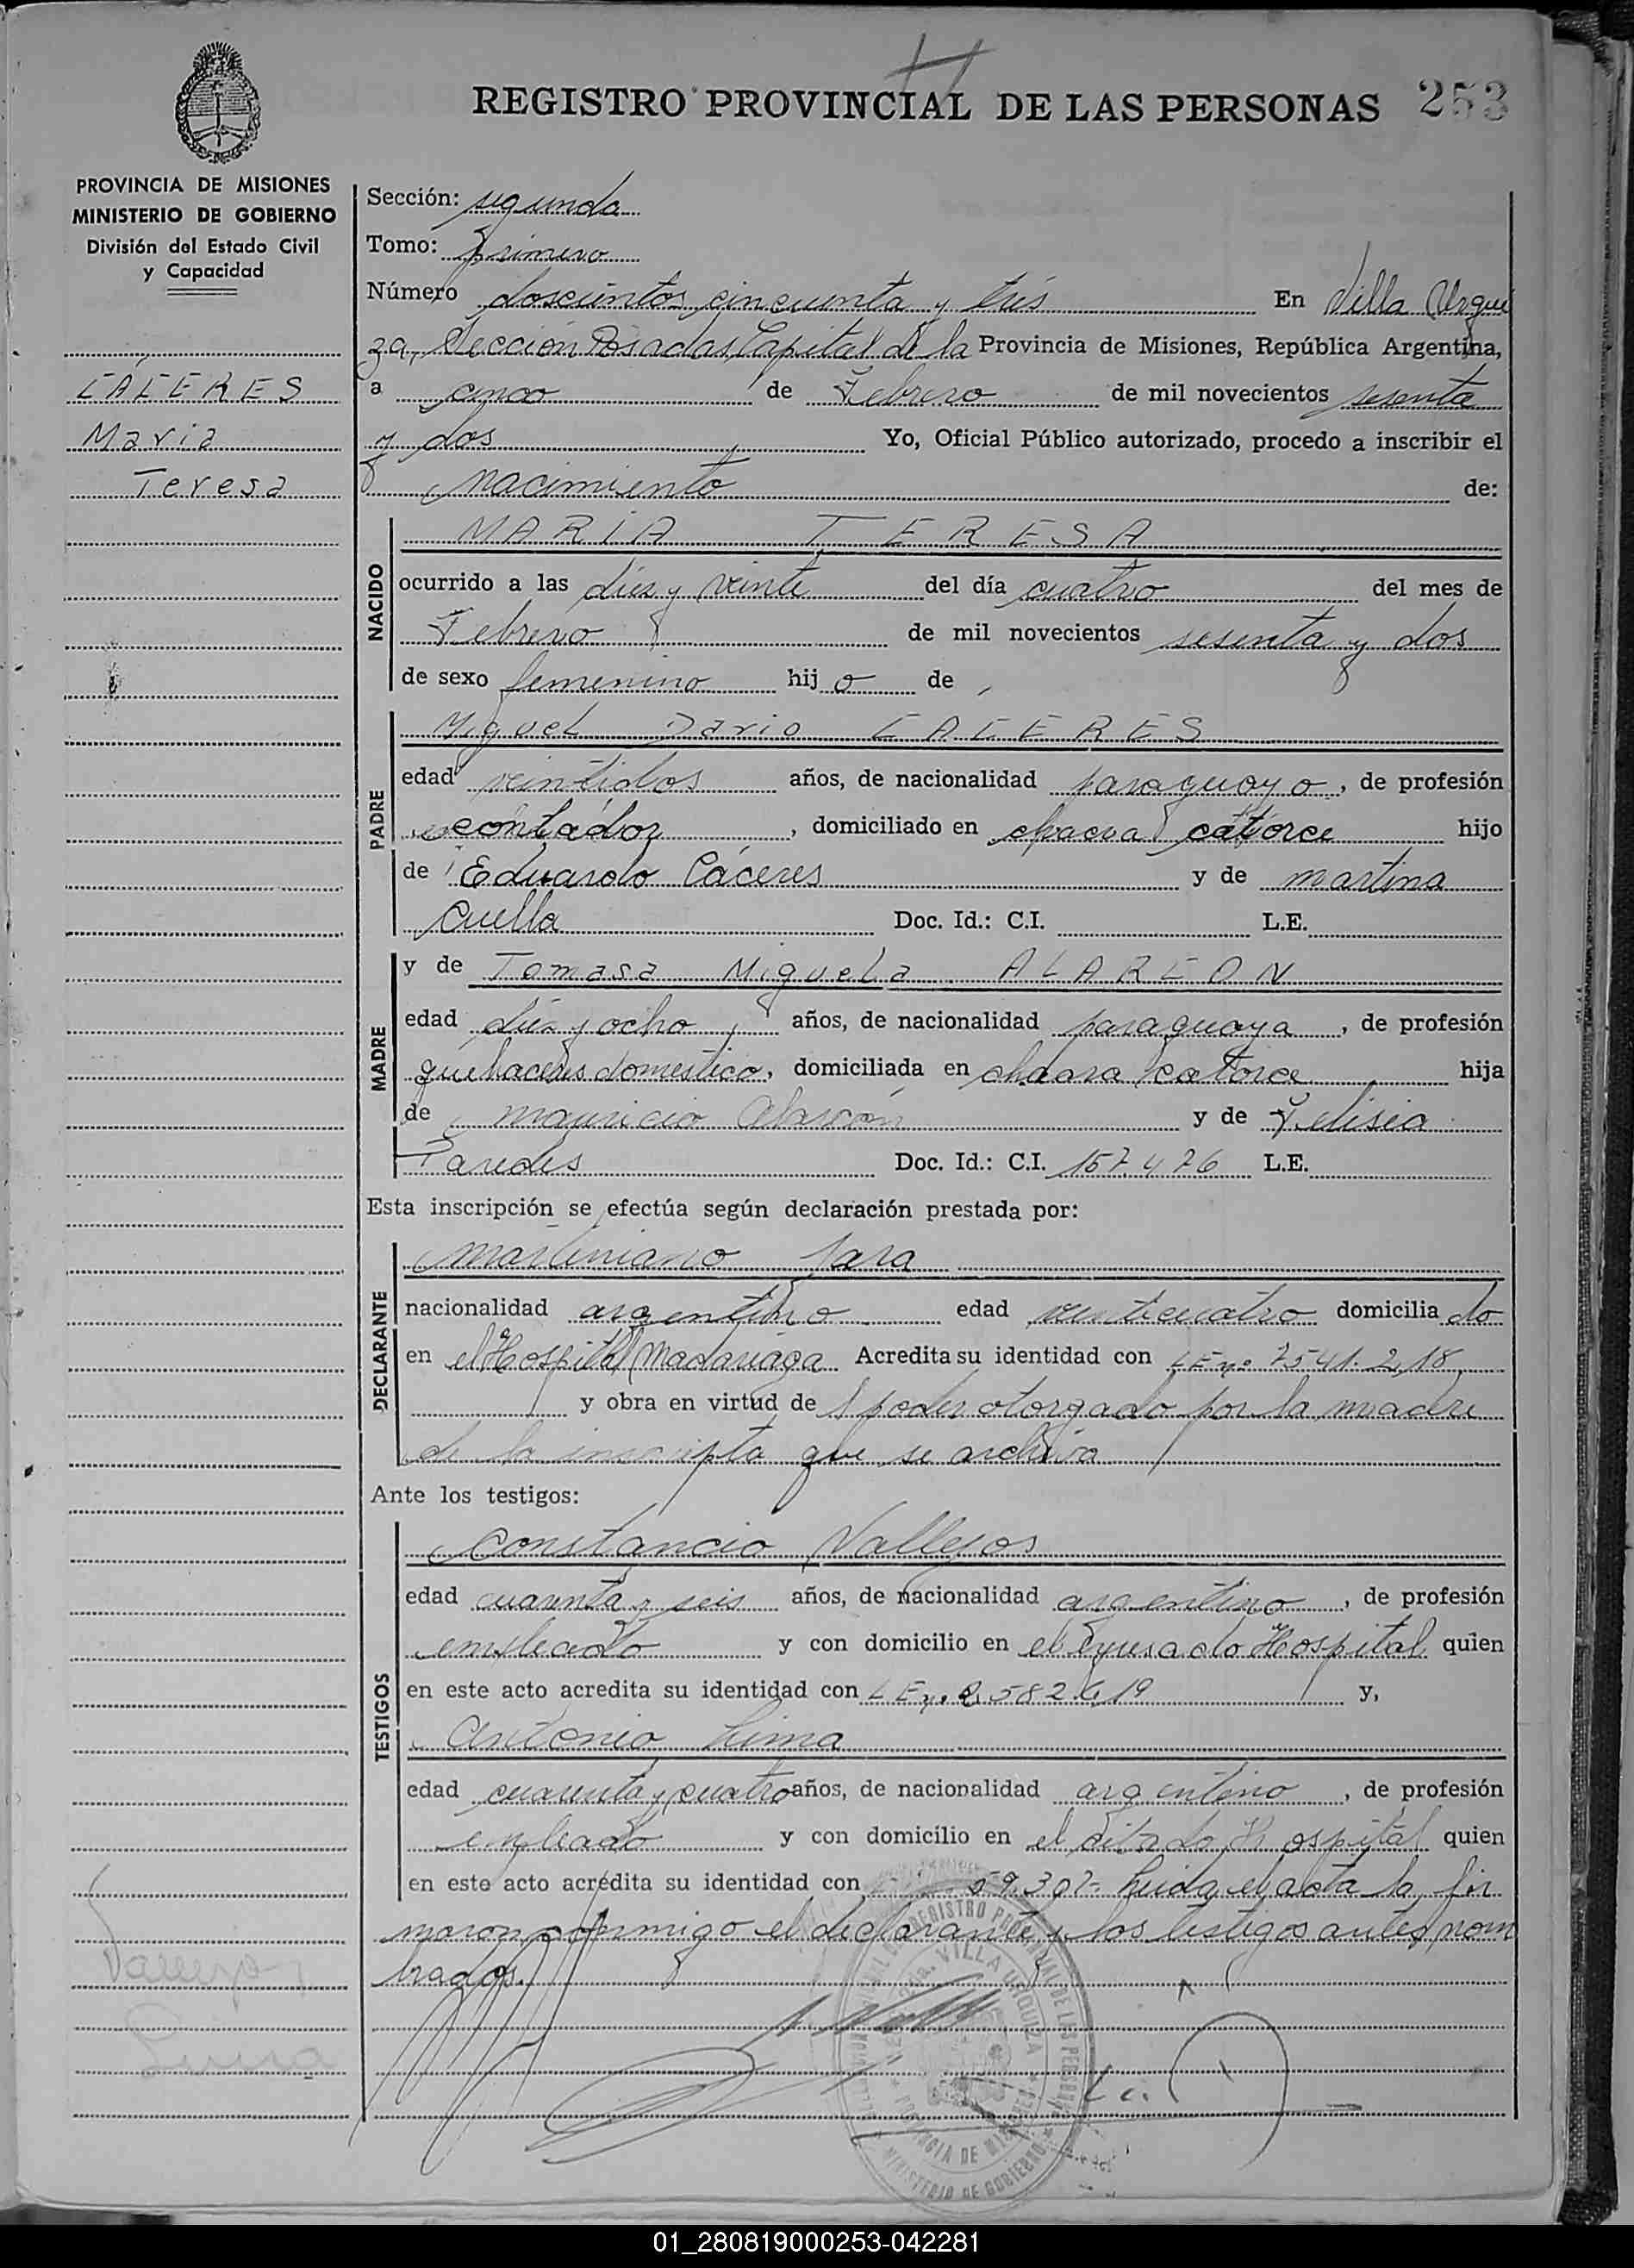 REGISTRO PROVINCIAL DE LAS PERSONAS 253
PROVINCIA DE MISIONES
MINISTERIO DE GOBIERNO
División del Estado Civil
y Capacidad
CÁCERES
Maria
Teresa
Sección: segunda
Tomo: Primero
Número doscientos cincuenta y tres En Villa Urqui
za, Sección Posadas, Capital de la Provincia de Misiones, República Argentina,
a cinco de Febrero de mil novecientos sesenta
y dos Yo, Oficial Público autorizado, procedo a inscribir el
nacimiento de:
NACIDO
MARIA TERESA
ocurrido a las diez y veinte del día cuatro del mes de
Febrero de mil novecientos sesenta y dos
de sexo femenino hij o de
PADRE
Miguel Dario CACERES
edad veintidos años, de nacionalidad paraguayo, de profesión
contador, domiciliado en chacra catorce hijo
de Eduardo Cáceres y de martina
Cuella Doc. Id.: C.I. L.E.
MADRE
y de Tomasa Miguela ALARCON
edad diez y ocho años, de nacionalidad paraguaya, de profesión
quehaceres domestico, domiciliada en chacra catorce hija
de mauricio Alarcón y de Felisia
Paredes Doc. Id.: C.I. 157.476 L.E.
Esta inscripción se efectúa según declaración prestada por:
DECLARANTE
Martiniano Jara
nacionalidad argentino edad veinticuatro domicilia do
en el Hospital Madariaga Acredita su identidad con LE nº 7541.218
y obra en virtud de poder otorgado por la madre
de la inscripta que se archiva
Ante los testigos:
TESTIGOS
Constancio Vallejos
edad cuarenta y seis años, de nacionalidad argentino, de profesión
empleado y con domicilio en el expresado Hospital quien
en este acto acredita su identidad con LE nº 2.582.619 y,
Antonio Lima
edad cuarenta y cuatro años, de nacionalidad argentino, de profesión
empleado y con domicilio en el citado Hospital quien
en este acto acredita su identidad con 59.307- Leida el acta la fir
maron conmigo el declarante y los testigos antes nom
brados.
VILLA URQUIZA
PROVINCIA DE MISIONES
MINISTERIO DE GOBIERNO
01_280819000253-042281